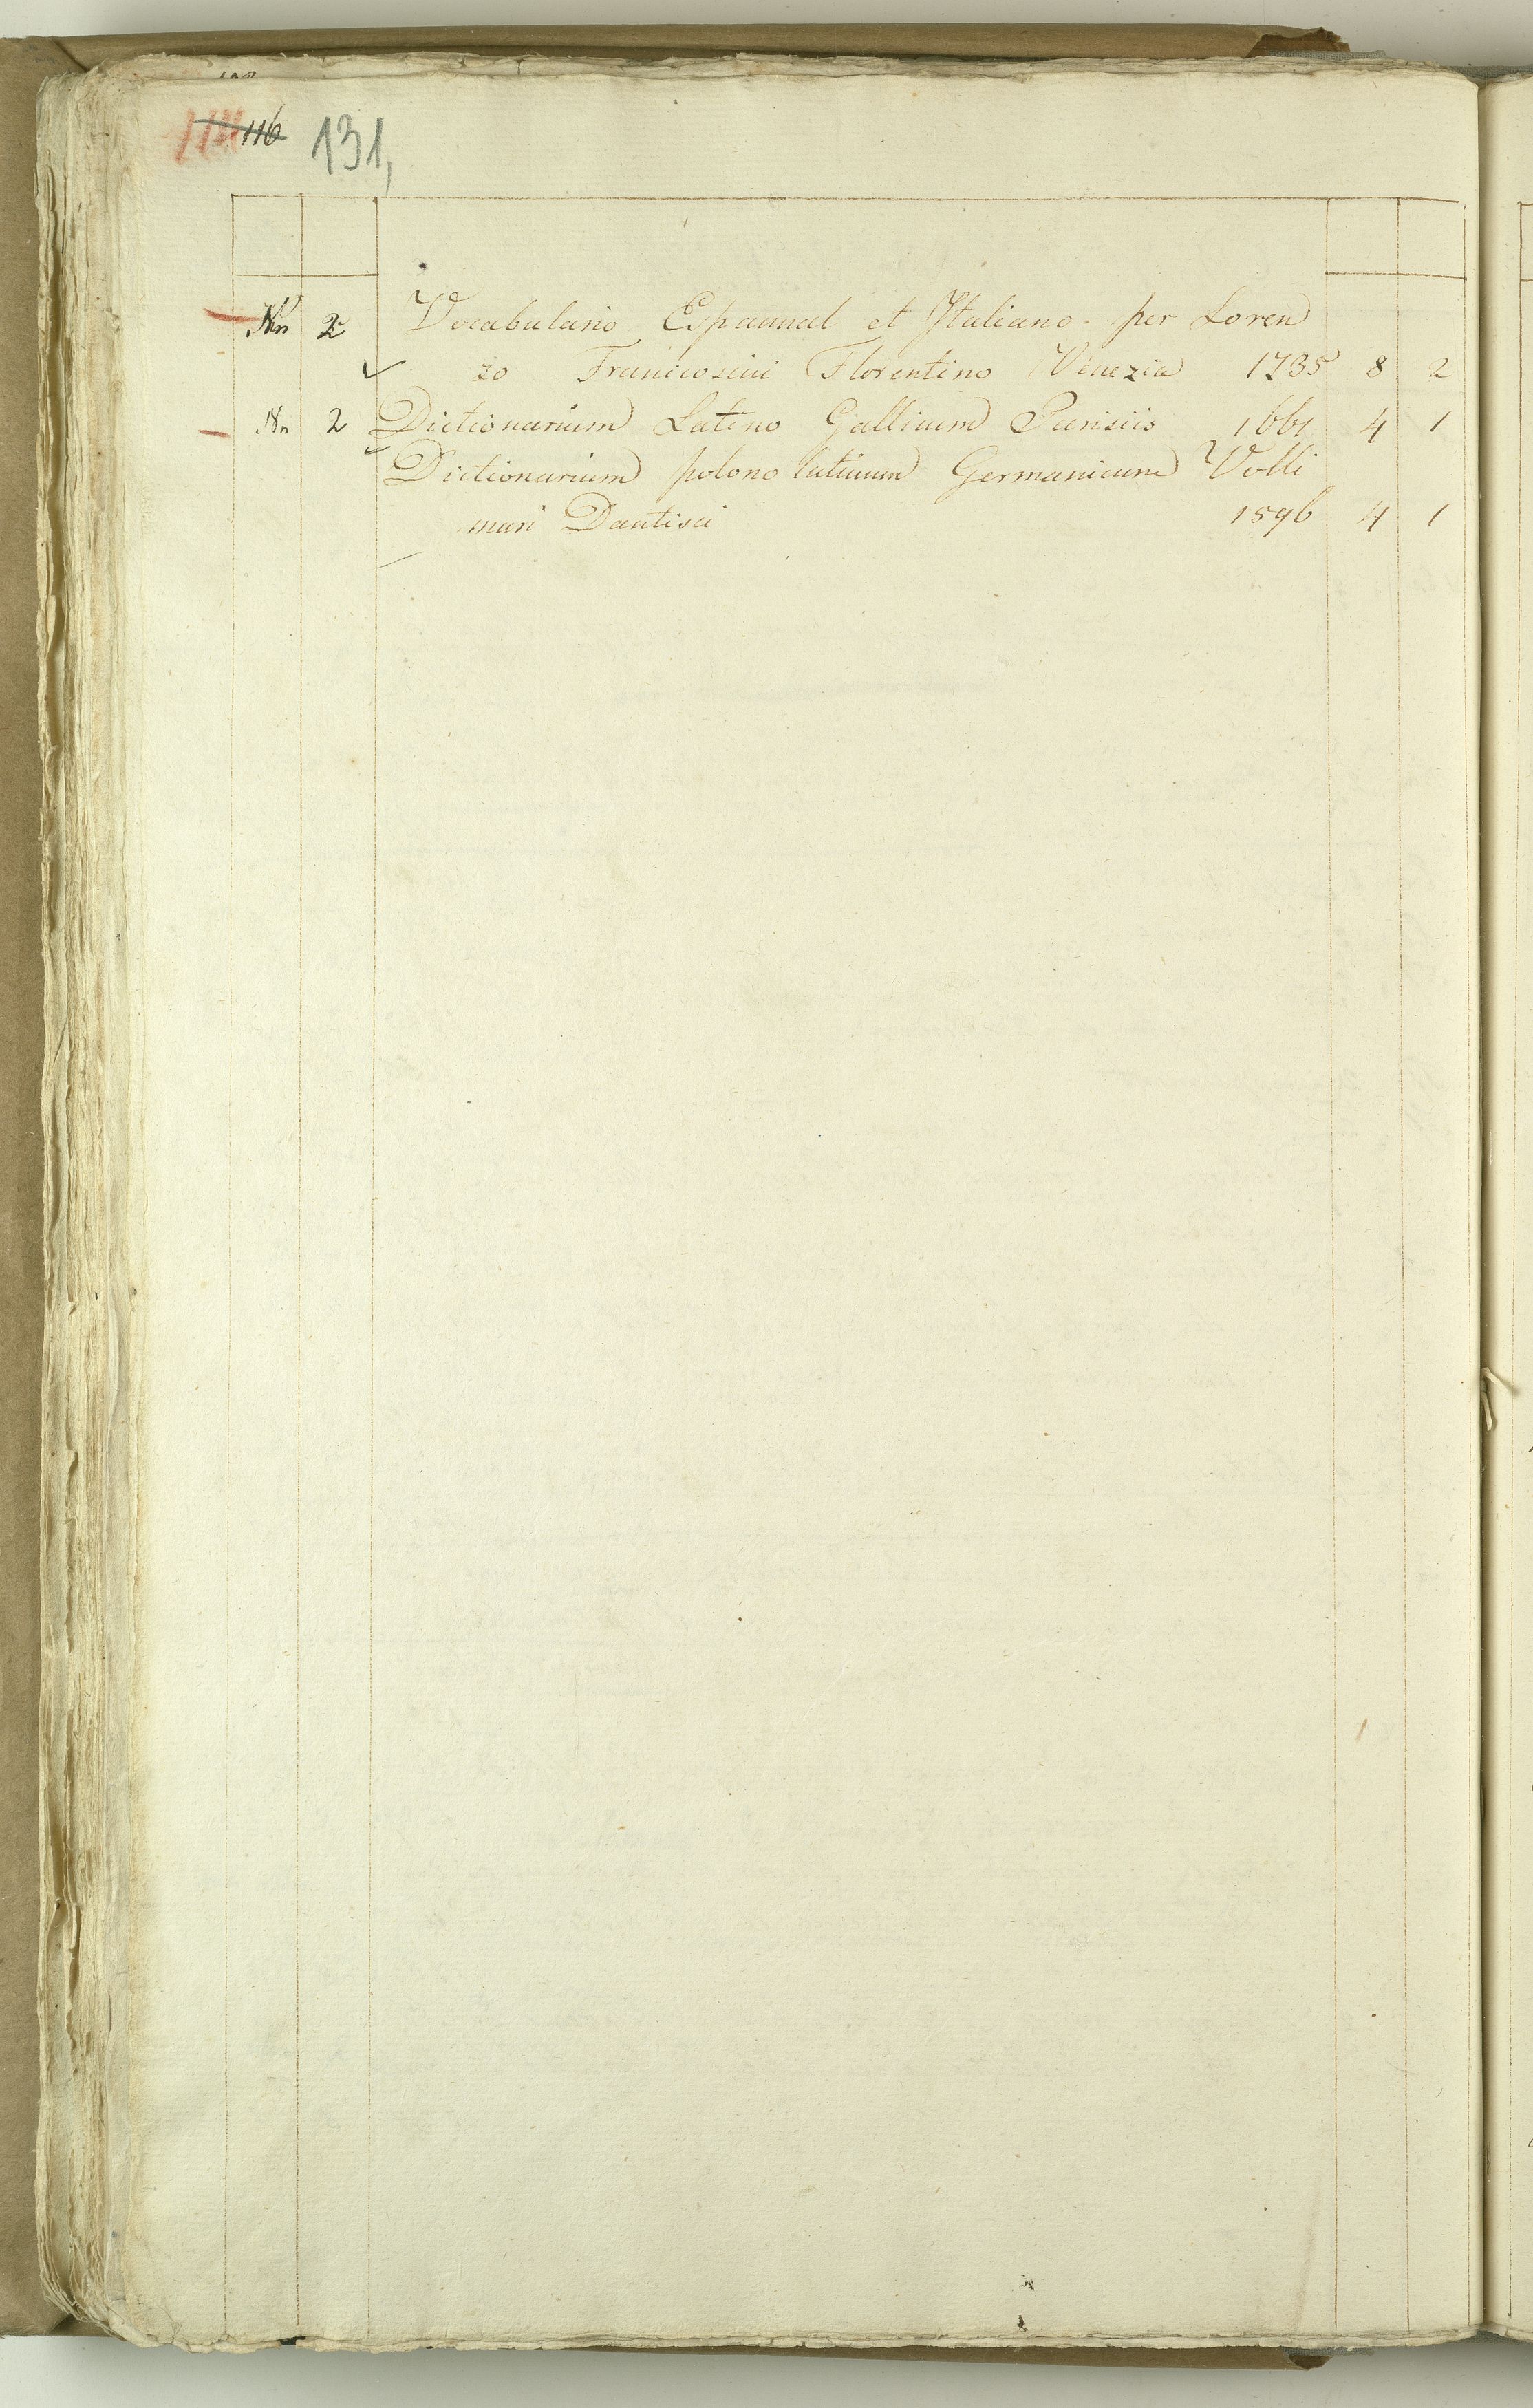 116 131,
Nn 2 Vocabulario Espannol et Italiano per Loren
zo Franicosini Florentino Venezia 1735 8 2
Nn 2 Dictionarium Latino Gallicum Parisiis 1661 4 1
Dictionarium polono latinum Germanicum Volk
mari Dantisci 1596 4 1